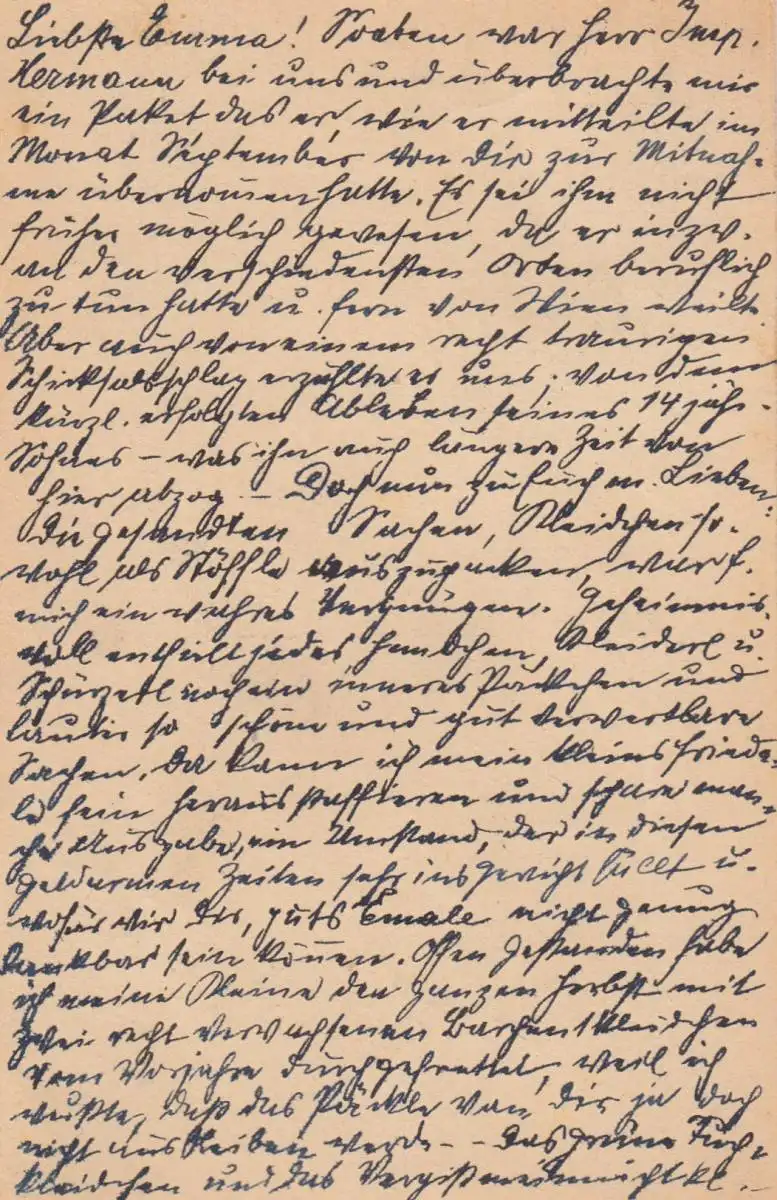 Liebste Emma! Soeben war Herr Insp.
Hermann bei uns und überbrachte mir
ein Paket das er, wie er mitteilte im
Monat September von dir zur Mitnah-
me übernommen hatte. Es sei ihm nicht
früher möglich gewesen, da er inzw.
an den verschiedensten Orten beruflich
zu tun hatte u. fern von Wien weilte
Aber auch von einem recht traurigen
Schicksalsschlag erzählte er uns, von dem
kürzl. erfolgten Ableben seines 14 jähr.
Sohnes – was ihn auch längere Zeit von
hier abzog. – Doch nun zu Euch m. Lieben:
Die gesandten Sachen, Kleidchen so-
wohl als Stöffle auszupacken, war f.
mich ein wahres Vergnügen. Geheimnis-
voll enthielt jedes Hemdchen, Kleiderl u.
Schürzerl noch ein inneres Päckchen und
lauter so schöne und gut verwertbare
Sachen. Da kann ich mein kleines Friede-
le fein herausstaffieren und spare man-
che Ausgabe, ein Umstand, der in diesen
geldarmen Zeiten sehr ins Gewicht fällt u.
wofür wir Dir, gute Emale nicht genug
dankbar sein können. Offen gestanden habe
ich meine Kleine den ganzen Herbst mit
zwei recht verwachsenen Barchentkleidchen
vom Vorjahre durchgefrettet, weil ich
wußte, daß das Päckle von dir ja doch
nicht ausbleiben werde – – Das grüne Tuch-
kleidchen und das Vergißmeinnicht kl. –